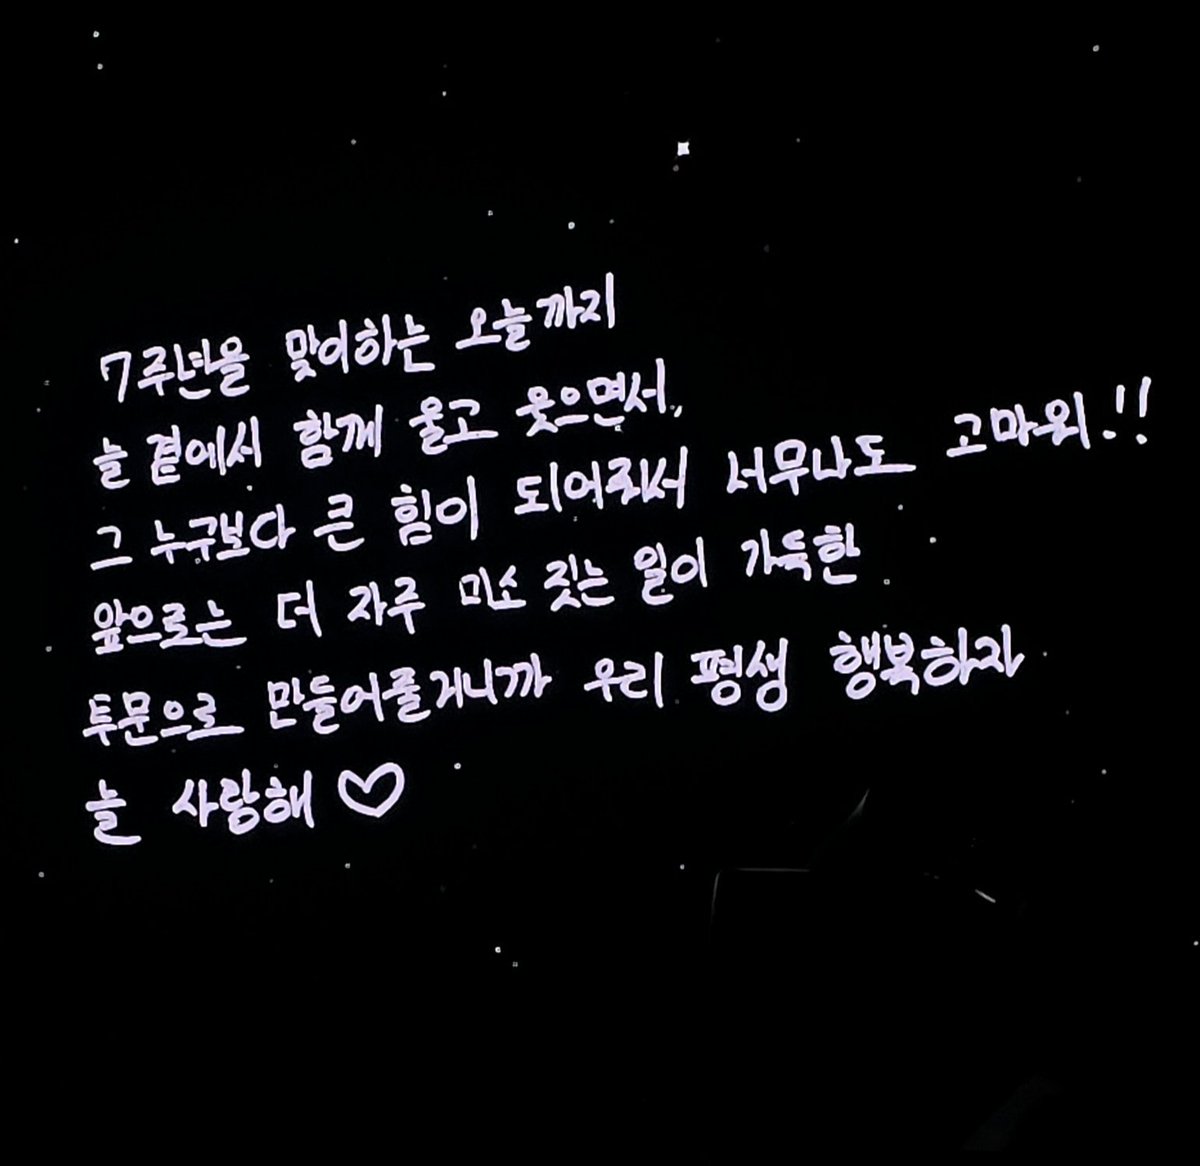 7주년을 맞이하는 오늘까지
늘 곁에서 함께 울고 웃으면서,
그 누구보다 큰 힘이 되어줘서 너무나도 고마워!!
앞으로는 더 자주 미소 짓는 일이 가득한
투문으로 만들어줄거니까 우리 평생 행복하자
늘 사랑해 ♡